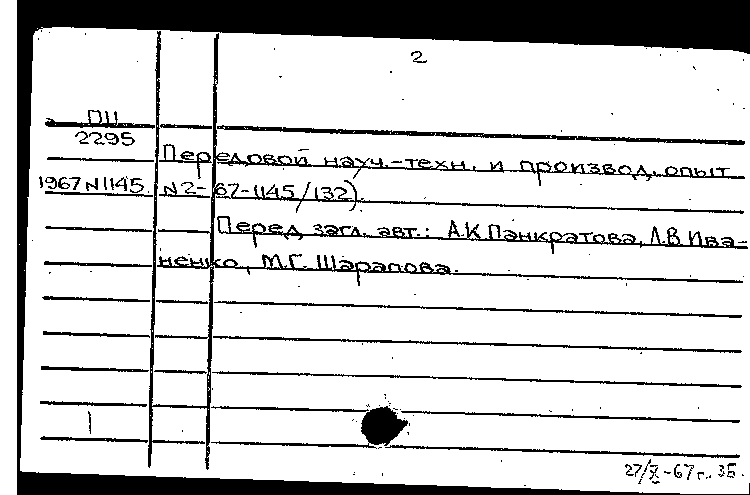 2
П11
2295
Передовой науч.-техн. и производ. опыт
1967 N1145. N2-67-1145/132).
Перед загл. авт.: А.К. Панкратова, Л.В. Ива-
ненко, М.Г. Шарапова.
27/X-67г.